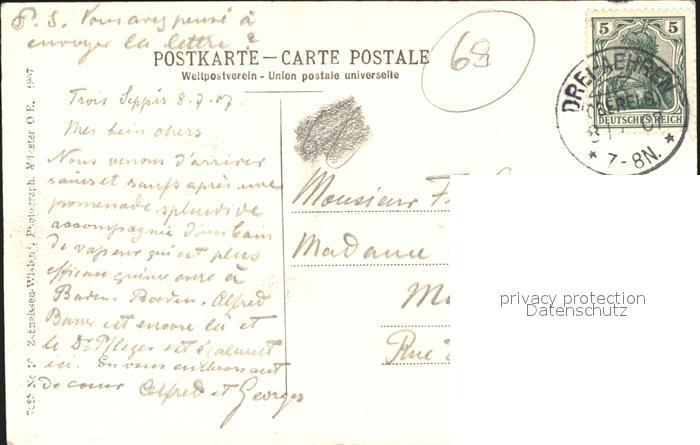 P. S. Vous avez pensé à
envoyer la lettre?
68
POSTKARTE – CARTE POSTALE
Weltpostverein - Union postale universelle
5 5
DEUTSCHES REICH
DREIAEHREN
7-8N.
Trois Seppis 8.7.07.
Mes bien chers
Nous venons d'arriver
sains et saufs après une
promenade splendide
accompagnée d'un bain
de vapeur qui est plus
efficace qu'une cure à
Baden-Baden. Alfred
Bauer est encore là et
le Dr Pfleger est également
ici. En vous embrassant
de coeur Alfred et Georges
Monsieur F.
Madame
Rue
Photograph. Münster O.E. 1907
privacy protection
Datenschutz